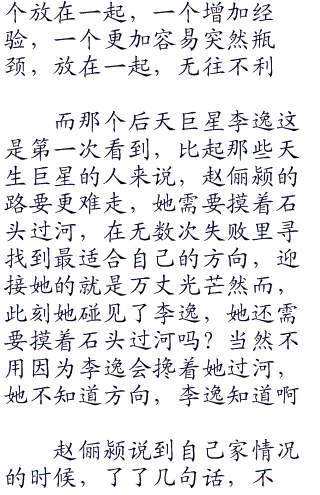 个放在一起，一个增加经
验，一个更加容易突然瓶
颈，放在一起，无往不利
而那个后天巨星李逸这
是第一次看到，比起那些天
生巨星的人来说，赵俪颍的
路要更难走，她需要摸着石
头过河，在无数次失败里寻
找到最适合自己的方向，迎
接她的就是万丈光芒然而，
此刻她碰见了李逸，她还需
要摸着石头过河吗？当然不
用因为李逸会搀着她过河，
她不知道方向，李逸知道啊
赵俪颍说到自己家情况
的时候，了了几句话，不